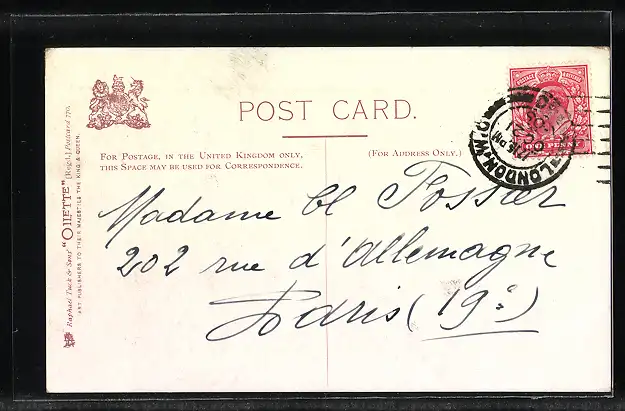 POST CARD.
FOR POSTAGE, IN THE UNITED KINGDOM ONLY,
THIS SPACE MAY BE USED FOR CORRESPONDENCE.
(FOR ADDRESS ONLY.)
Raphael Tuck & Sons' "OILETTE" [Regd.] Postcard 770.
ART PUBLISHERS TO THEIR MAJESTIES THE KING & QUEEN.
POSTAGE REVENUE
ONE PENNY
LONDON W.C.
12.15 PM
Madame Cl Fossier
202 rue d'Allemagne
Paris (19e)